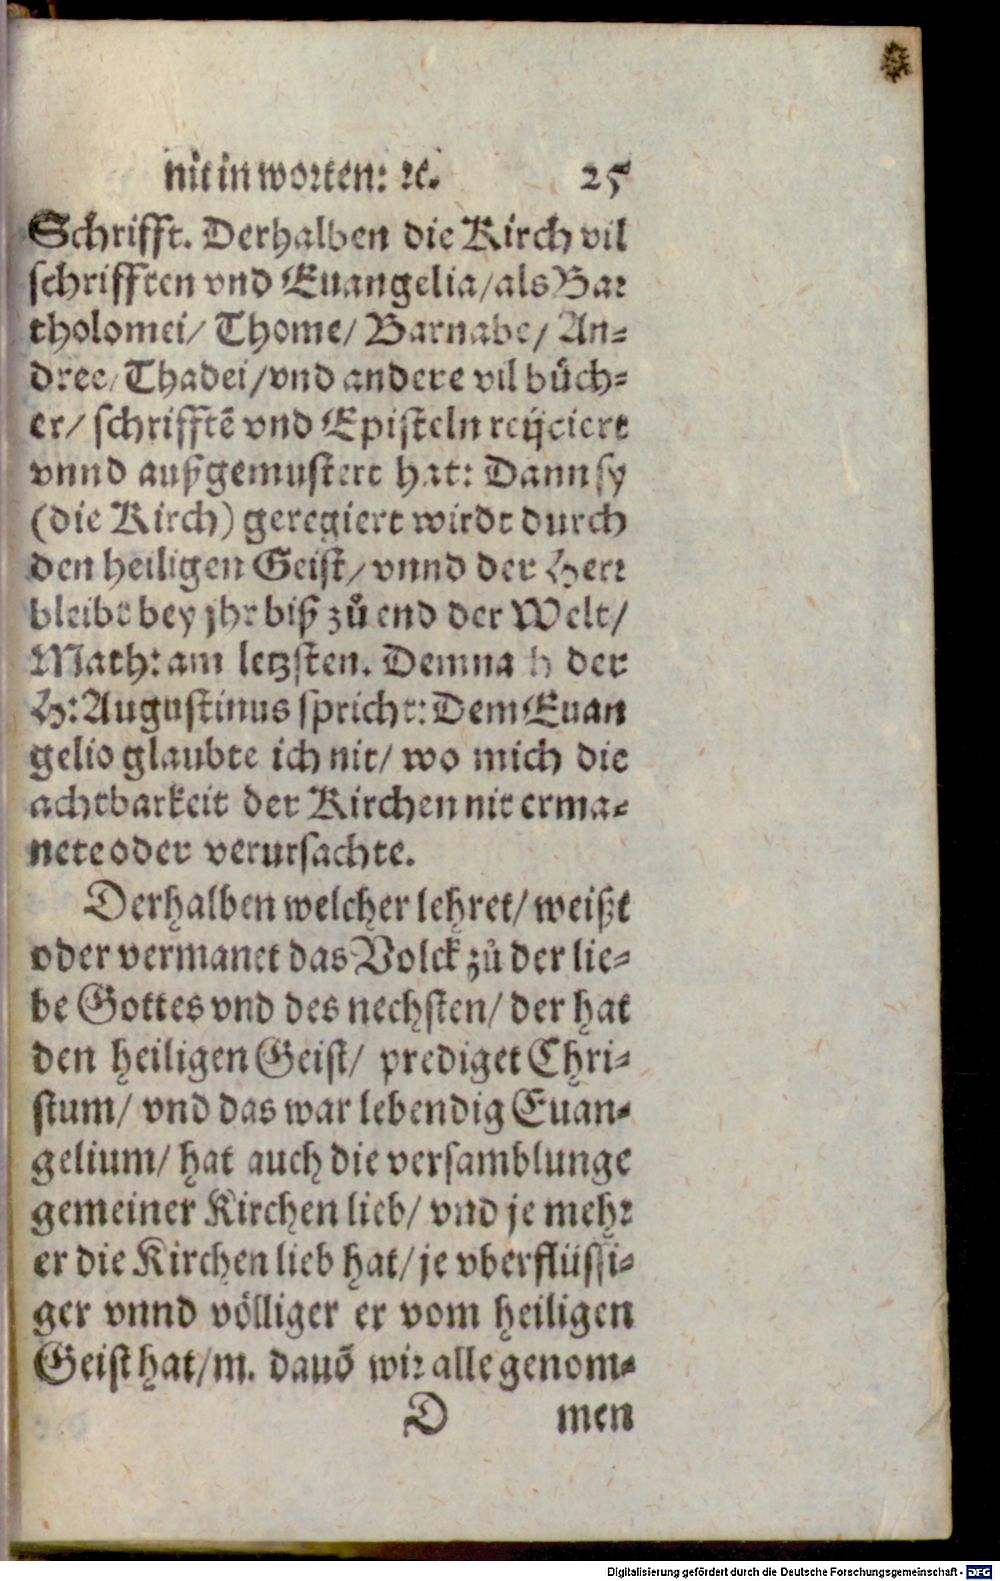 nit in worten: ꝛc. 25
Schrifft. Derhalben die Kirch vil
schrifften vnd Euangelia/als Bar
tholomei/ Thome/ Barnabe/ An-
dree/Thadei/vnd andere vil buͤch-
er/ schrifftẽ vnd Episteln reijciert
vnnd außgemustert hat: Dann sy
(die Kirch) geregiert wirdt durch
den heiligen Geist/ vnnd der Herr
bleibt bey jhr biß zů end der Welt/
Math: am letzsten. Demnach der
H: Augustinus spricht: Dem Euan
gelio glaubte ich nit/ wo mich die
achtbarkeit der Kirchen nit erma-
nete oder verursachte.
Derhalben welcher lehret/ weißt
oder vermanet das Volck zů der lie-
be Gottes vnd des nechsten/ der hat
den heiligen Geist/ prediget Chri-
stum/ vnd das war lebendig Euan-
gelium/ hat auch die versamblunge
gemeiner Kirchen lieb/ vnd je mehr
er die Kirchen lieb hat/ je vberflüssi-
ger vnnd völliger er vom heiligen
Geist hat/m. dauõ wir alle genom-
D men
Digitalisierung gefördert durch die Deutsche Forschungsgemeinschaft - DFG